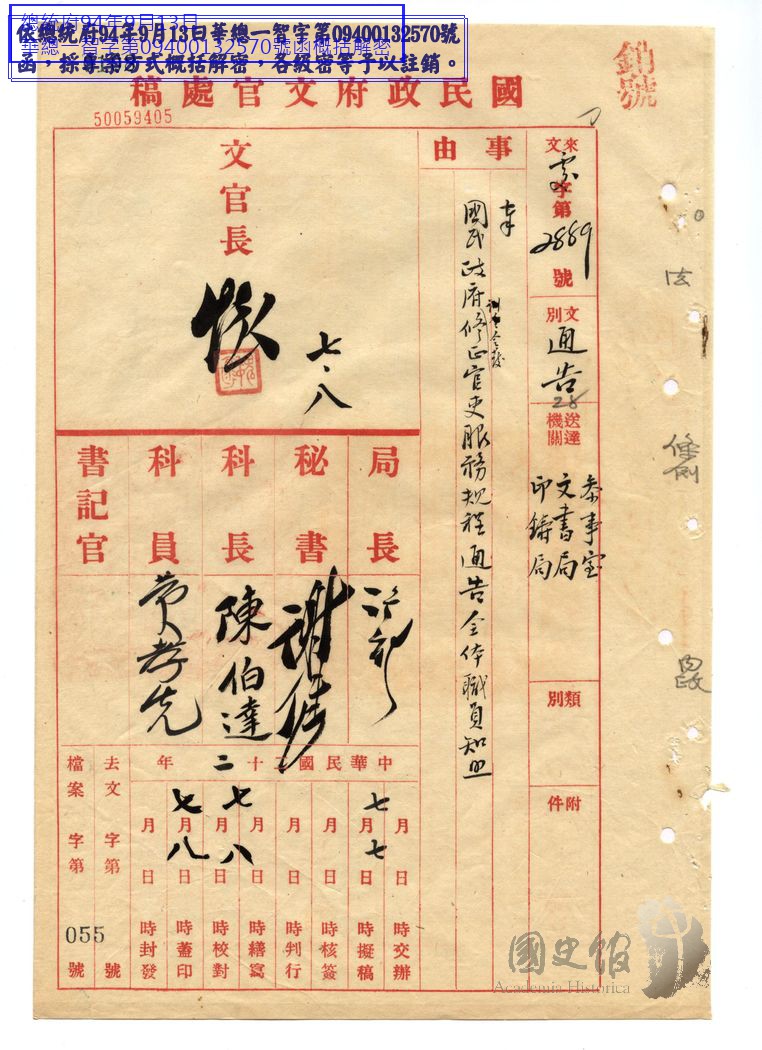 依總統府94年9月13日華總一智字第09400132570號
函，採專案方式概括解密，各級密等予以註銷。
總統府94年9月13日
華總一智字第09400132570號函概括解密
銷號
國民政府文官處稿
50059405
來文
字第2889號
文別
通告
送達機關
28
參事室
文書局
印鑄局
類別
附件
事由
奉
國民政府訓令修正官吏服務規程通告全体職員知照
文官長
七、八
局長
秘書
謝
科長
陳伯達
科員
黄孝先
書記官
中華民國二十二年
月日時交辦
七月七日時擬稿
月日時核簽
月日時判行
月日時繕寫
七月八日時校對
七月八日時蓋印
月日時封發
去文字第號
檔案字第055號
法
條例
國史館
Academia Historica